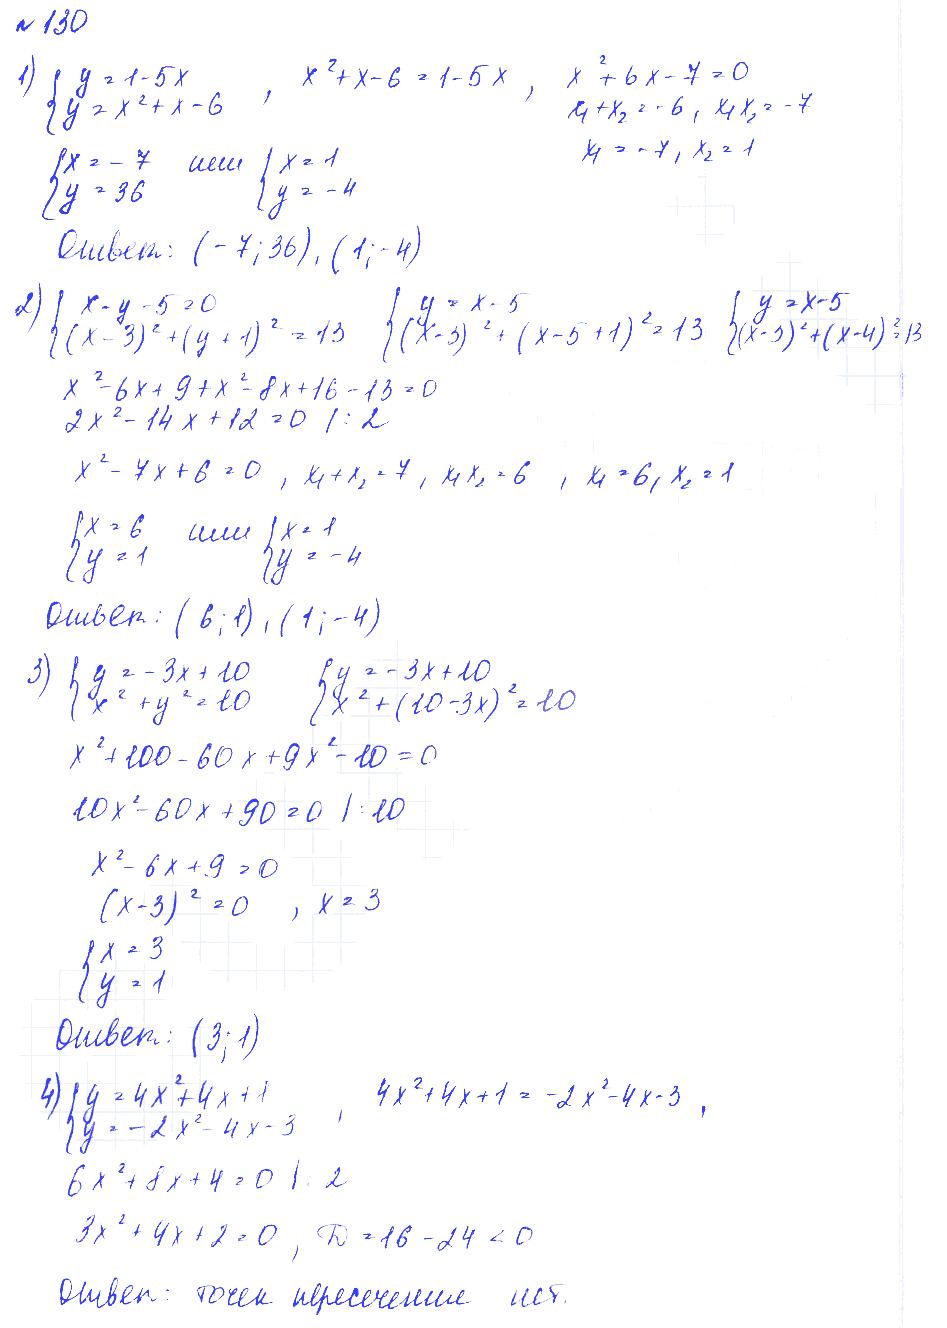 №130
1) { y = 1-5x , x²+x-6 = 1-5x , x²+6x-7=0
y = x²+x-6 x₁+x₂=-6, x₁x₂=-7
x₁=-7, x₂=1
{ x=-7 или { x=1
y=36 y=-4
Ответ: (-7;36), (1;-4)
2) { x-y-5=0 { y=x-5 { y=x-5
(x-3)²+(y+1)²=13 (x-3)²+(x-5+1)²=13 (x-3)²+(x-4)²=13
x²-6x+9+x²-8x+16-13=0
2x²-14x+12=0 |:2
x²-7x+6=0, x₁+x₂=7, x₁x₂=6, x₁=6, x₂=1
{ x=6 или { x=1
y=1 y=-4
Ответ: (6;1), (1;-4)
3) { y=-3x+10 { y=-3x+10
x²+y²=10 x²+(10-3x)²=10
x²+100-60x+9x²-10=0
10x²-60x+90=0 |:10
x²-6x+9=0
(x-3)²=0, x=3
{ x=3
y=1
Ответ: (3;1)
4) { y=4x²+4x+1 , 4x²+4x+1=-2x²-4x-3,
y=-2x²-4x-3
6x²+8x+4=0 |:2
3x²+4x+2=0, D=16-24<0
Ответ: точек пересечение нет.